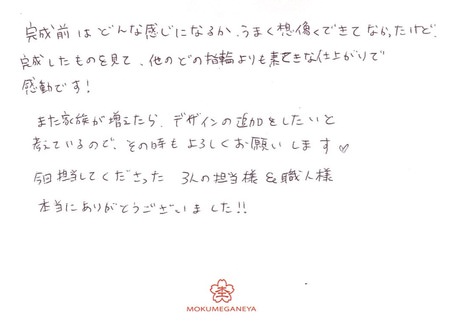 完成前はどんな感じになるか、うまく想像できてなかったけど、
完成したものを見て、他のどの指輪よりも素てきな仕上がりで
感動です！
また家族が増えたら、デザインの追加をしたいと
考えているので、その時もよろしくお願いします♡
今日担当してくださった 3人の担当様&職人様
本当にありがとうございました!!
杢
MOKUMEGANEYA